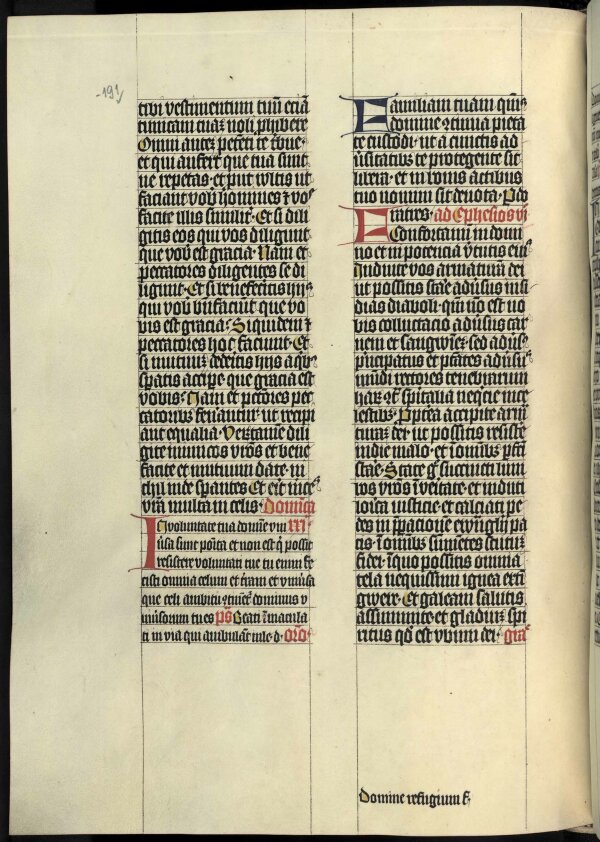 -191-
tibi vestimentum tuū etiā
tunicam tuaʒ noli ꝓhibere
Omni autē petēti te tbue·
et qui aufert que tua sunt
ne repetas· et put wltis ut
faciant vob homines ⁊ vos
facite illis similit̾· Et si dili
gitis eos qui vos diligunt
que vob est gracia· Nam et
peccatores diligentes se di
ligunt· Et si benefecitis hijs
qui vob bn̄faciunt que vo
bis est gracia· Siquidem ⁊
peccatores hoc faciunt· Et
si mutuū dederitis hijs a qb
spatis accipe que gracia est
vobis· Nam et pctores pec
catoribꝫ fenantur ut recipi
ant equalia· Verūtamē dili
gite inimicos vr̄os et bene
facite et mutuum date· in
chil inde spantes Et erit mce
vr̄a multa in celis· Dominica
In voluntate tua domīe vni
ūsa sunt poīta et non est q̄ possit
resistere voluntati tue tu enim fe
cisti omnia celum et t̄ram et vniūsa
que celi ambitu ɔtinēt̾ dominus v
niūsorum tu es ps̄ Beati īmacula
ti in via qui ambulant in le· d· or̄o·
Familiam tuam qūs
domine ɔtinua pieta
te custodi· ut a cunctis ad
ūsitatibꝫ te protegente sit
libera· et in bonis actibus
tuo nomini sit deuota· P do
Fratres· ad Ephesios vi
Confortamī in domi
no et in potencia v̄tutis eiꝰ
Induite vos armaturā dei
ut possitis stāe adūsus insi
dias diaboli· qm̄ nō est no
bis colluctacio adūsus car
nem et sangwiēꝫ· sed adūsꝰ
p̄ncipatus et ptātes adūsꝰ
mūdi rectores tenebrarum
haꝝ ɔt̾ spiritalia neqcie in ce
lestibꝫ· Pptea accipite arm̄
turaꝫ dei ut possitis resiste
in die malo· et ī omībꝫ pfcī
stāe· State g̊ succincti lum
bos vr̄os ī veitate· et induti
loīca iusticie· et calciati pe
des in ꝑꝑacione ewāgly pa
cis· ī omībꝫ sumētes scutuꝫ
fidei· ī quo possitis omnia
tela nequissimi ignea extī
gwere· Et galeam salutis
assummite· et gladiuꝫ spi
ritus qd̄ est v̄bum dei· gra
Domine refugium f·